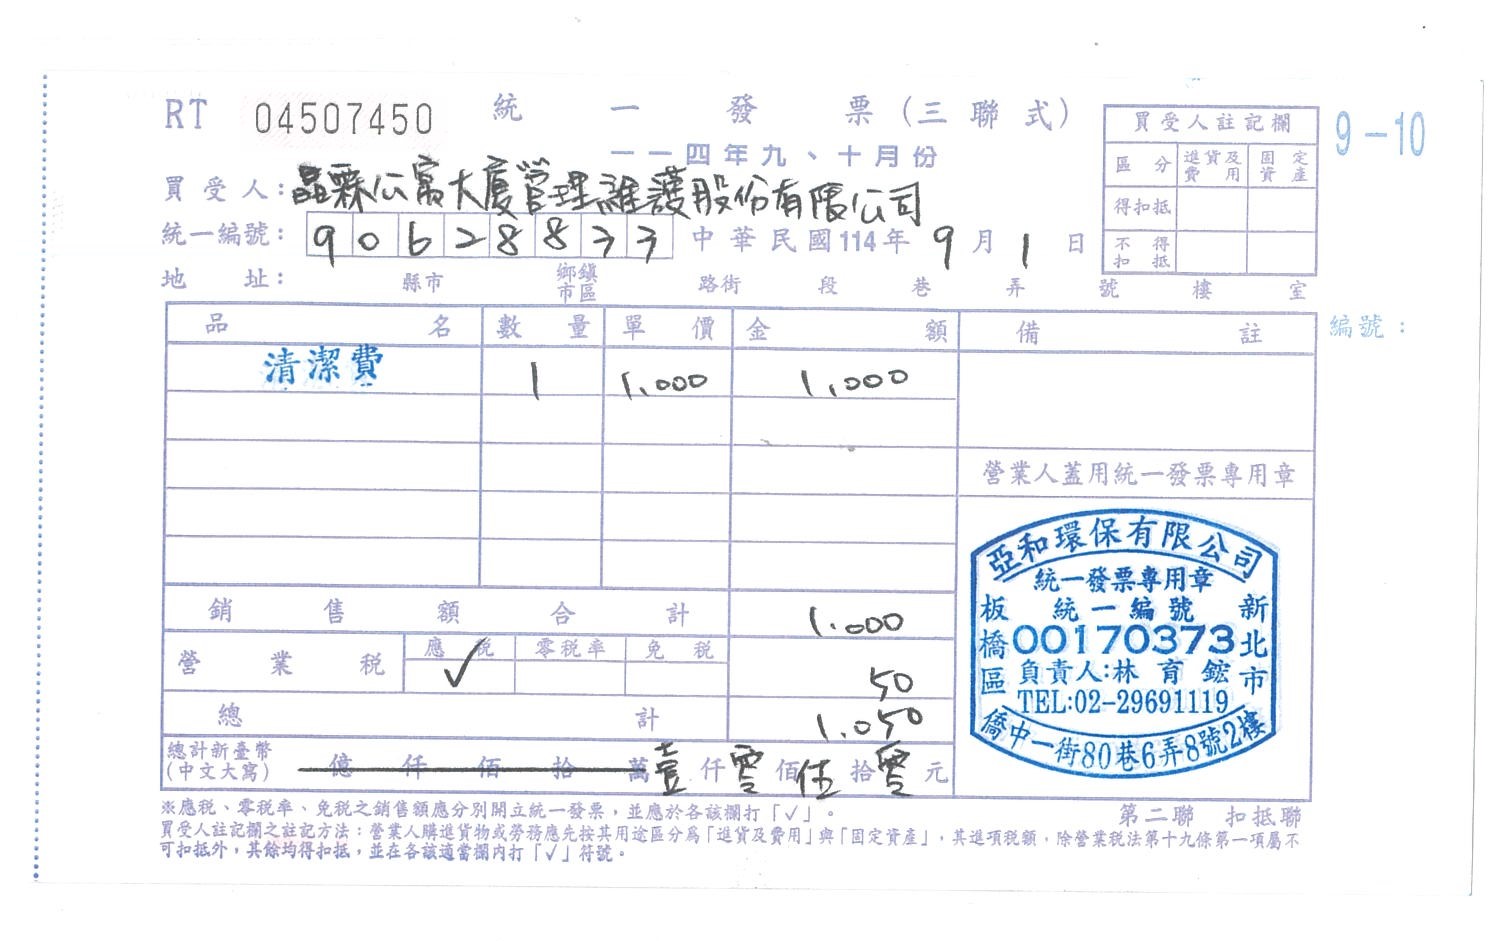 RT 04507450 統一發票(三聯式) 9-10
一一四年九、十月份
買受人:晶霖公寓大廈管理維護股份有限公司
統一編號:90628833 中華民國114年9月1日
地址: 縣市 鄉鎮市區 路街 段 巷 弄 號 樓 室
買受人註記欄
區分 進貨及費用 固定資產
得扣抵
不得扣抵
編號:
品名 數量 單價 金額 備註
清潔費 1 1,000 1,000
營業人蓋用統一發票專用章
銷售額合計 1,000
營業稅 應稅 ✓ 零稅率 免稅 50
總計 1,050
總計新臺幣(中文大寫) 億仟佰拾萬壹仟零佰伍拾零元
亞和環保有限公司
統一發票專用章
統一編號
00170373
負責人:林育鋐
TEL:02-29691119
新北市
板橋區
僑中一街80巷6弄8號2樓
※應稅、零稅率、免稅之銷售額應分別開立統一發票,並應於各該欄打「✓」。
第二聯 扣抵聯
買受人註記欄之註記方法:營業人購進貨物或勞務應先按其用途區分為「進貨及費用」與「固定資產」,其進項稅額,除營業稅法第十九條第一項屬不
可扣抵外,其餘均得扣抵,並在各該適當欄內打「✓」符號。